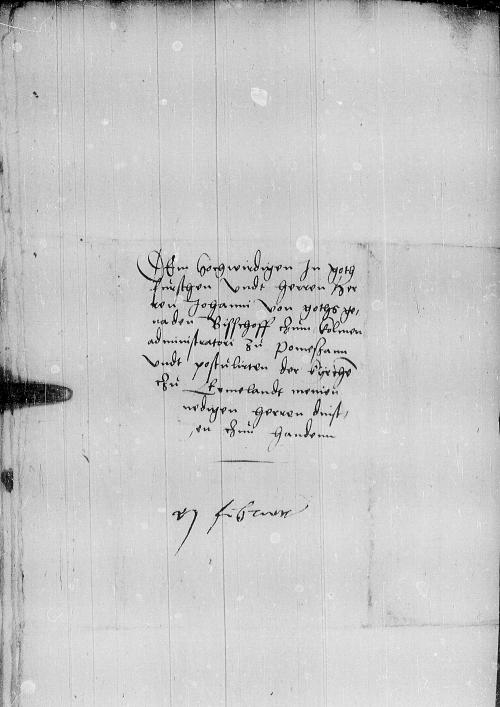 Dem hochwirdigen In goth
furschen undt herren her
ren Johanni von goths ge,
naden Bisschoff chum Colmen
administratori zu Pomezann
undt postulirten der kyrche
chu Ermelandt meinen
nedigen herren dinst,
en chuu handenn